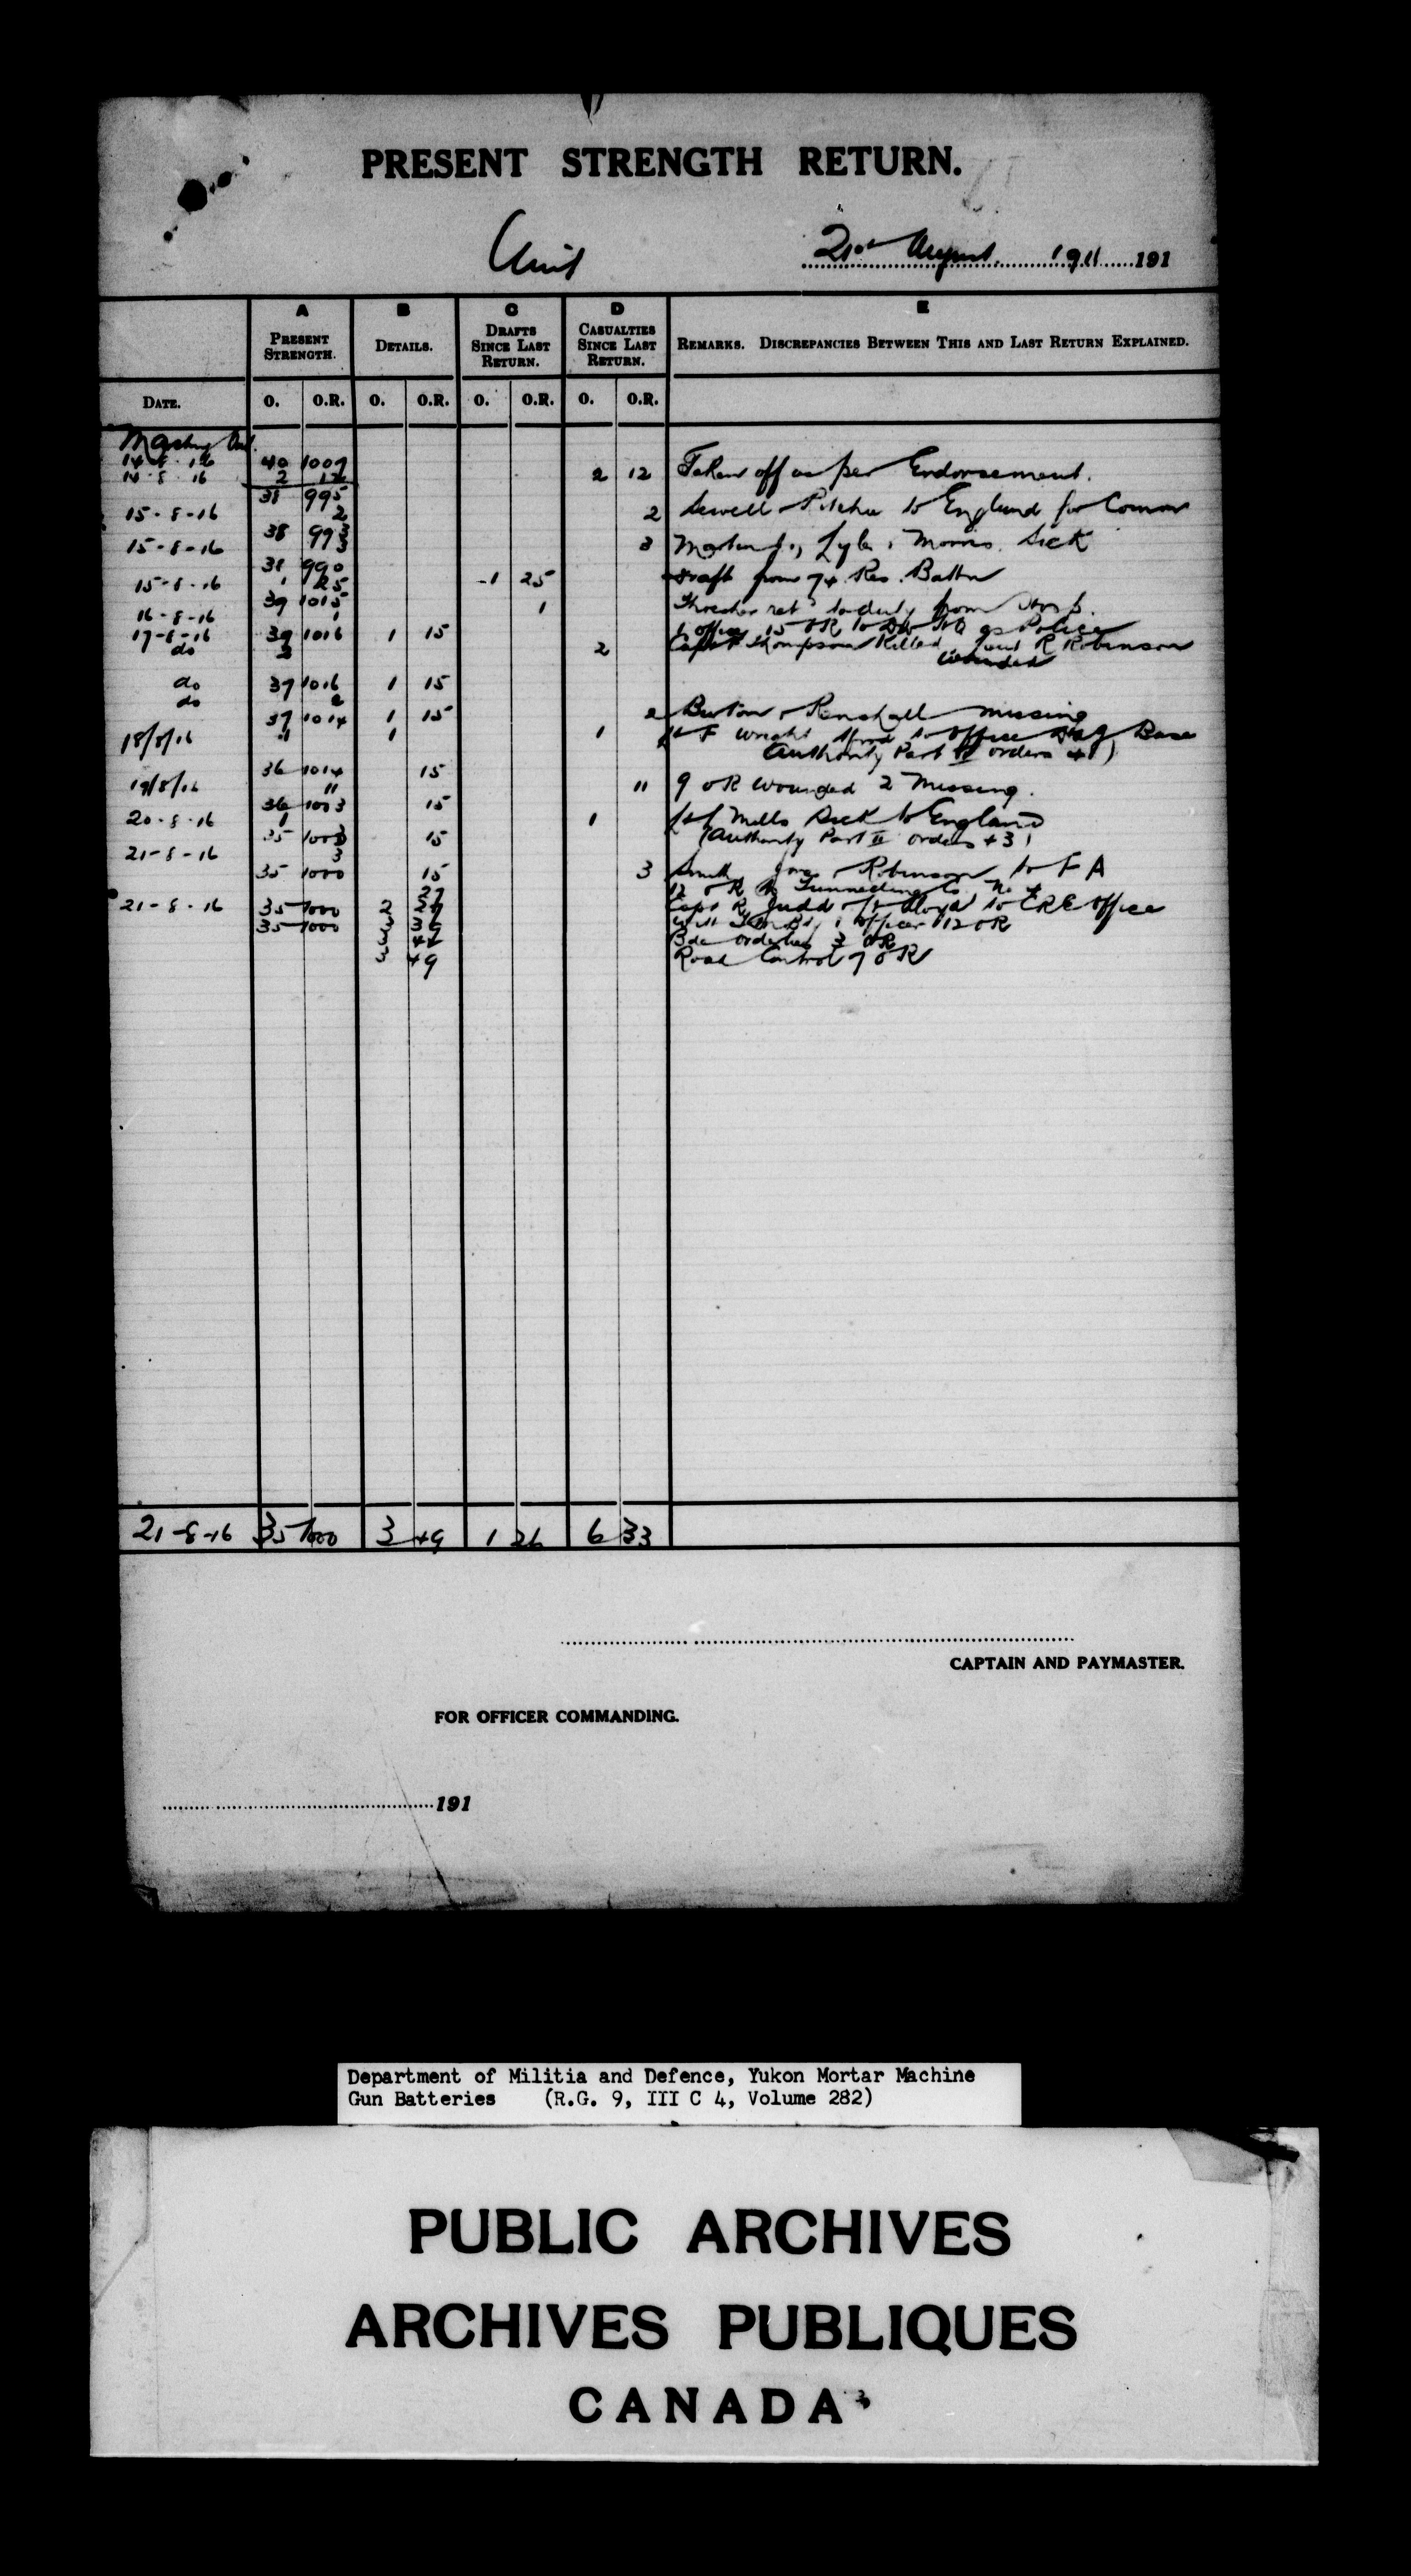 PRESENT STRENGTH RETURN.
Unit
21st August 1911 191
A B C D E
PRESENT STRENGTH. DETAILS. DRAFTS SINCE LAST RETURN. CASUALTIES SINCE LAST RETURN. REMARKS. DISCREPANCIES BETWEEN THIS AND LAST RETURN EXPLAINED.
DATE. O. O.R. O. O.R. O. O.R. O. O.R.
14-8-16 40 1007
14.8.16 2 12 2 12 Taken off as per Endorsement.
38 995
15-8-16 2 2 Sewell Pitcher to England for Comm
38 993
15-8-16 3 3 Lyle, Morris. Sick
38 990
15-8-16 1 25 1 25 Draft from 74 Res. Battn
39 1015
16-8-16 1 1 Thresher retd to duty from Hosp.
17-8-16 39 1016 1 15 1 officer 15 OR to Div HQ as Police
do 2 2 Capt Thompson Killed R Robinson
wounded
do 37 1016 1 15
do 2 2 Burton, Renshall missing
37 1014 1 15
18/8/16 1 1 1 Lt F Wright to office Base
Authority Part II orders 41)
36 1014 15
19/8/16 11 11 9 OR Wounded 2 Missing.
36 1003 15
20-8-16 1 1 Lt Mills Sick to England
35 1003 15 (Authority Part II orders 43)
21-8-16 3 3 Smith Jones Robinson to F A
35 1000 15
27 12 OR to Tunnelling Co. No
21-8-16 35 1000 2 Capt R Judd Lt Lloyd to CRE office
35 1000 3 1 officer 12 OR
3 42 Bde orderlies 3 OR
3 49 Road Control 7 OR
21-8-16 35 1000 3 49 1 26 6 33
CAPTAIN AND PAYMASTER.
FOR OFFICER COMMANDING.
191
Department of Militia and Defence, Yukon Mortar Machine
Gun Batteries (R.G. 9, III C 4, Volume 282)
PUBLIC ARCHIVES
ARCHIVES PUBLIQUES
CANADA